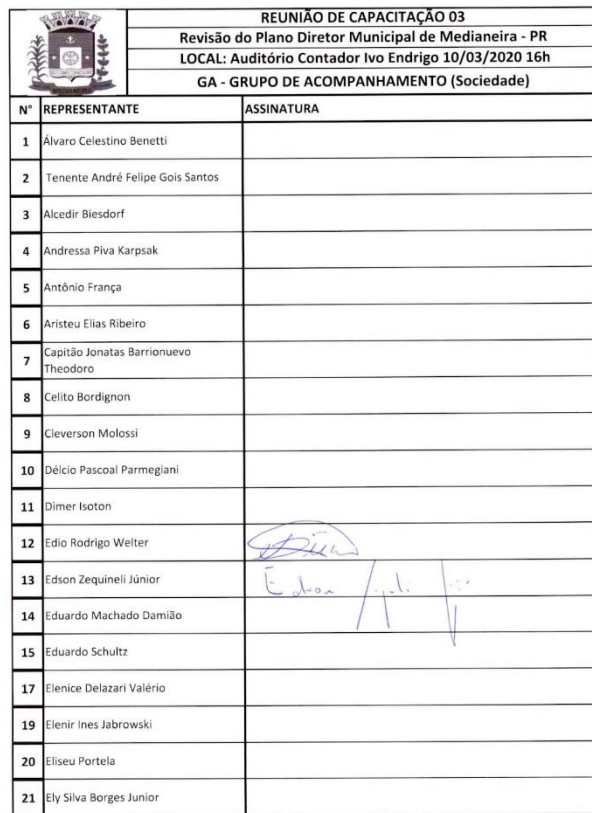 MEDIANEIRA
REUNIÃO DE CAPACITAÇÃO 03
Revisão do Plano Diretor Municipal de Medianeira - PR
LOCAL: Auditório Contador Ivo Endrigo 10/03/2020 16h
GA - GRUPO DE ACOMPANHAMENTO (Sociedade)
N° REPRESENTANTE ASSINATURA
1 Álvaro Celestino Benetti
2 Tenente André Felipe Gois Santos
3 Alcedir Biesdorf
4 Andressa Piva Karpsak
5 Antônio França
6 Aristeu Elias Ribeiro
7 Capitão Jonatas Barrionuevo
Theodoro
8 Celito Bordignon
9 Cleverson Molossi
10 Délcio Pascoal Parmegiani
11 Dimer Isoton
12 Edio Rodrigo Welter
13 Edson Zequineli Júnior Edson
14 Eduardo Machado Damião
15 Eduardo Schultz
17 Elenice Delazari Valério
19 Elenir Ines Jabrowski
20 Eliseu Portela
21 Ely Silva Borges Junior